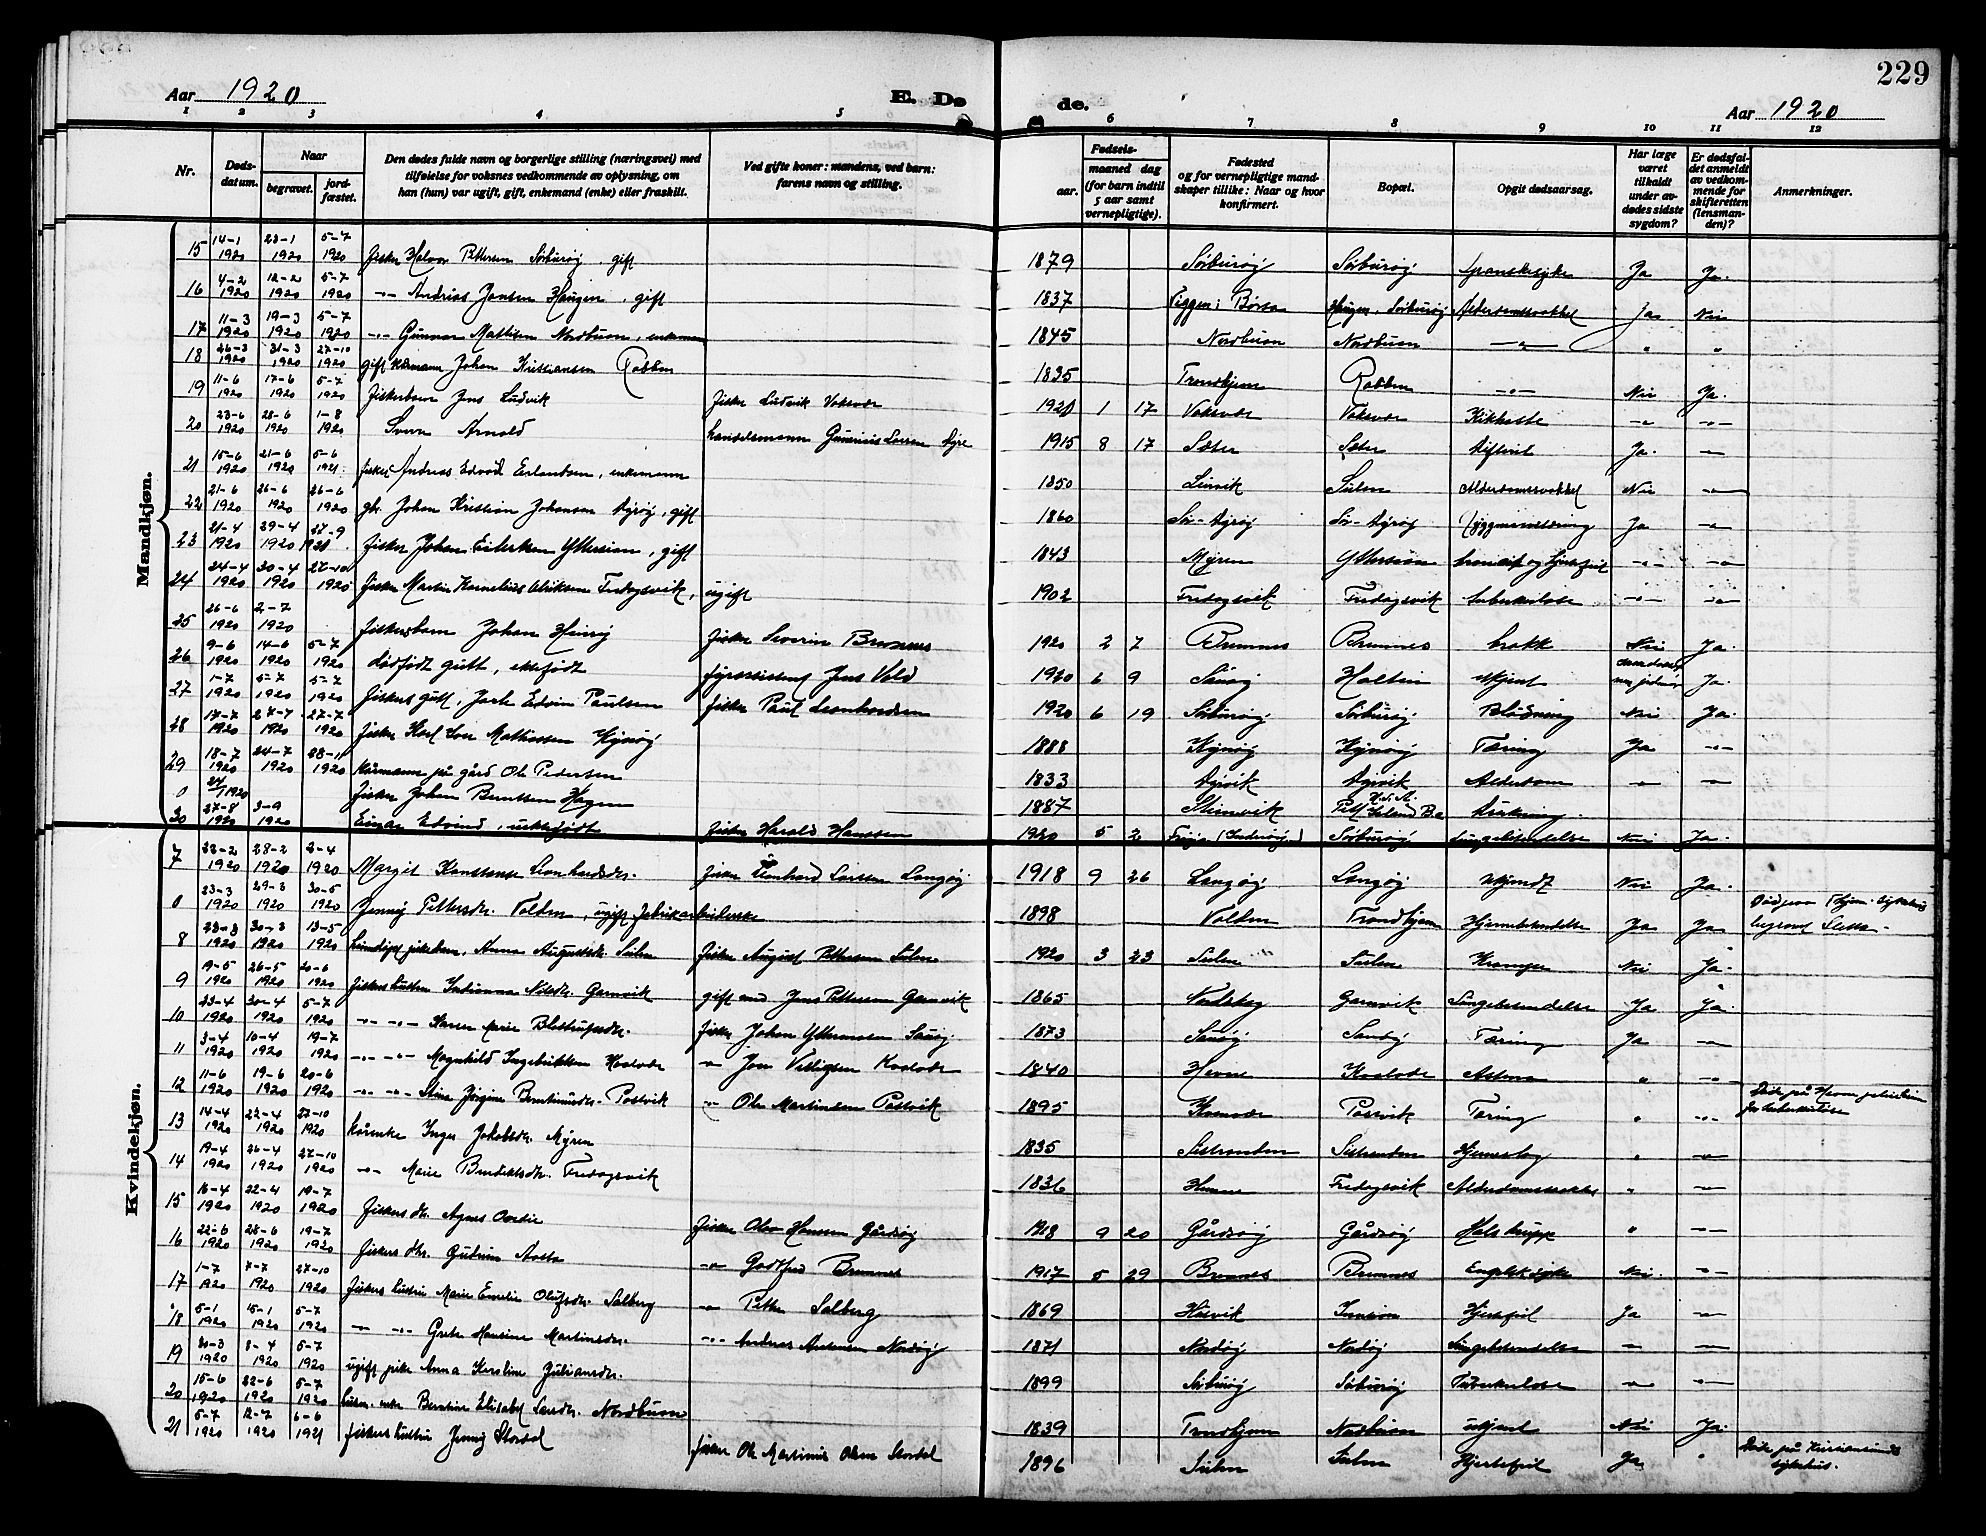 229
Aar 1920
E. Dø
de.
Aar 1920
1 2 3 4 5 6 7 8 9 10 11 12
Nr.
Døds-
datum.
Naar
begravet.
jord-
fæstet.
Den dødes fulde navn og borgerlige stilling (næringsvei) med
tilføielse for voksnes vedkommende av oplysning, om
han (hun) var ugift, gift, enkemand (enke) eller fraskilt.
Ved gifte koner: mandens, ved barn:
farens navn og stilling.
Fødsels-
aar.
maaned dag
(for barn indtil
5 aar samt
vernepligtige).
Fødested
og for vernepligtige mand-
skaper tillike: Naar og hvor
konfirmert.
Bopæl.
Opgit dødsaarsag.
Har læge
været
tilkaldt
under av-
dødes sidste
sygdom?
Er dødsfal-
det anmeldt
av vedkom-
mende for
skifteretten
(lensman-
den)?
Anmerkninger.
Mandkjøn.
15 14-1 1920 23-1 1920 5-7 1920 Fisker Halvor Pettersen Sørburøy, gift 1879 Sørburøy Sørburøy Spanskesyke Ja Ja.
16 4-2 1920 12-2 1920 5-7 1920 -"- Andrias Jansen Haugen, gift 1837 Børsa Haugen, Sørburøy Alderdomssvakhet Ja Nei
17 11-3 1920 19-3 1920 5-7 1920 -"- Gunnar Mathisen Nordbuen, enkeman 1845 Nordbuen Nordbuen -"- " "
18 26-3 1920 31-3 1920 27-10 1920 gift Kårmann Johan Kristiansen Rabben 1835 Trondhjem Rabben -"- Nei Ja.
19 11-6 1920 17-6 1920 5-7 1920 Fiskerbarn Jens Ludvik Fisker Ludvik Vaksvær 1920 1 17 Vaksvær Vaksvær Kikhoste -"- -"-
20 23-6 1920 28-6 1920 1-8 1920 Sverre Arnold handelsmann Larsen 1915 8 17 Sæter Sæter Difterit Ja. -"-
21 15-6 1920 21-6 1920 5-6 1921 fisker Andreas Edvard Erlandsen, enkemann 1850 Leirvik Sulen Alderdomssvakhet Nei -"-
22 21-6 1920 26-6 1920 26-6 1920 gbr. Johan Kristian Johansen Dyrøy, gift 1860 Sør-Dyrøy Sør-Dyrøy Ja -"-
23 21-4 1920 29-4 1920 27-9 1920 Fisker Johan Eilertsen Yttersian, gift 1843 Myren Yttersian bronkit og hjertefeil -"- -"-
24 24-4 1920 30-4 1920 27-10 1920 Fisker Martin Kornelius Ulriksen Fredagsvik, ugift 1902 Fredagsvik Fredagsvik tuberkulose -"- -"-
25 26-6 1920 2-7 1920 Fiskerbarn Johan Henry Fisker Severin Bremnes 1920 2 7 Bremnes Bremnes brokk Nei Ja.
26 9-6 1920 14-6 1920 5-7 1920 dødfødt gutt, ektefødt fyrassistent Jens Vold 1920 6 9 Sauøy Halten ukjent Ja.
27 1-7 1920 5-7 1920 5-7 1920 Fiskers gutt, Jarle Edvin Paulsen fisker Paul Leonhardsen 1920 6 19 Sørburøy Sørburøy Blødning Nei Ja
28 17-7 1920 27-7 1920 27-7 1920 Fisker Karl Mathiassen Kjønøy 1888 Kjønøy Kjønøy Tæring Ja -"-
29 18-7 1920 24-7 1920 28-11 1920 Kårmann på gård Ole Pedersen 1833 Dyrvik Dyrvik Alderdom -"- -"-
0 24/7 1920 Fisker Johan Berntsen Hagen 1887 Steinvik Drukning
30 27-8 1920 3-9 1920 Einar Edvind, uektefødt Fisker Harald Hanssen 1920 5 2 Sørburøy Lungebetendelse Nei Ja.
Kvindekjøn.
7 22-2 1920 28-2 1920 2-4 1920 Margit Konstanse Leonhardsdr. Fisker Leonhard Larsen Langøy 1918 9 26 Langøy Langøy Ukjendt Nei Ja.
0 23-3 1920 29-3 1920 30-5 1920 Jenny Pettersdr. Valden, ugift fabrikarbeiderske 1898 Valden Trondhjem Hjernebetendelse Ja Ja
8 23-3 1920 30-3 1920 13-5 1920 Anna Augustdr. Sulen Fisker August Pettersen Sulen 1920 3 23 Sulen Sulen Kramper Nei Ja.
9 19-5 1920 26-5 1920 20-6 1920 Fiskers hustru Indianna Nilsdr. Garnvik gift med Jens Pettersen Garnvik 1865 Garnvik Lungebetendelse Ja Ja.
10 23-4 1920 30-4 1920 5-7 1920 -"- -"- Karen Marie Fisker Johan Sauøy 1873 Sauøy Sauøy Tæring Ja -"-
11 3-4 1920 10-4 1920 19-7 1920 -"- -"- Magnhild Ingebriktsen -"- 1840 Hevne Astma " -"-
12 11-6 1920 19-6 1920 20-6 1920 -"- -"- Stine Jørgine Postvik -"- Ole Martinsen Postvik 1895 Postvik Tæring " -"- Døde på
13 14-4 1920 22-4 1920 27-10 1920 Kårenke Inger Jakobsdr. Myren 1835 Sistranden Sistranden Hjerneslag " -"-
14 19-4 1920 26-4 1920 27-10 1920 -"- Marie Bendiktsdr. Fredagsvik 1836 Hevne Fredagsvik Alderdomssvakhet " -"-
15 16-4 1920 22-4 1920 19-7 1920 Fiskers dtr. Agnes Ovedie Fisker Olav Hansen Gårdsøy 1918 9 20 Gårdsøy Gårdsøy Halskrupp " -"-
16 22-6 1920 28-6 1920 19-7 1920 Fiskers dtr. Gudrun Aasta -"- Godtfred Bremnes 1917 5 29 Bremnes Bremnes Engelsk syke Nei. -"-
17 1-7 1920 7-7 1920 27-10 1920 Fiskers hustru Marie Emelie Olufsdr. Salberg -"- Petter Salberg 1869 Husvik Hjertefeil Ja -"-
18 5-1 1920 15-1 1920 5-7 1920 -"- -"- Grete Hansine Martinsdr. -"- Andreas Andersen Nordøy 1871 Nordøy Nordøy Lungebetendelse -"- -"-
19 30-3 1920 8-4 1920 5-7 1920 ugift pike Anna Kerstine Julianedr. 1899 Sørburøy Sørburøy Tuberkulose -"- -"-
20 15-6 1920 22-6 1920 5-7 1920 Elisabet Larsdr. Nordbuen 1839 Trondhjem Nordbuen ukjent Nei Ja.
21 5-7 1920 12-7 1920 6-6 1921 fiskers hustru Jenny Stordal fisker Ole Martinus Olsen Stordal 1896 Sulen Sulen Hjertefeil Ja " Døde på Kristiansunds
sykehus.